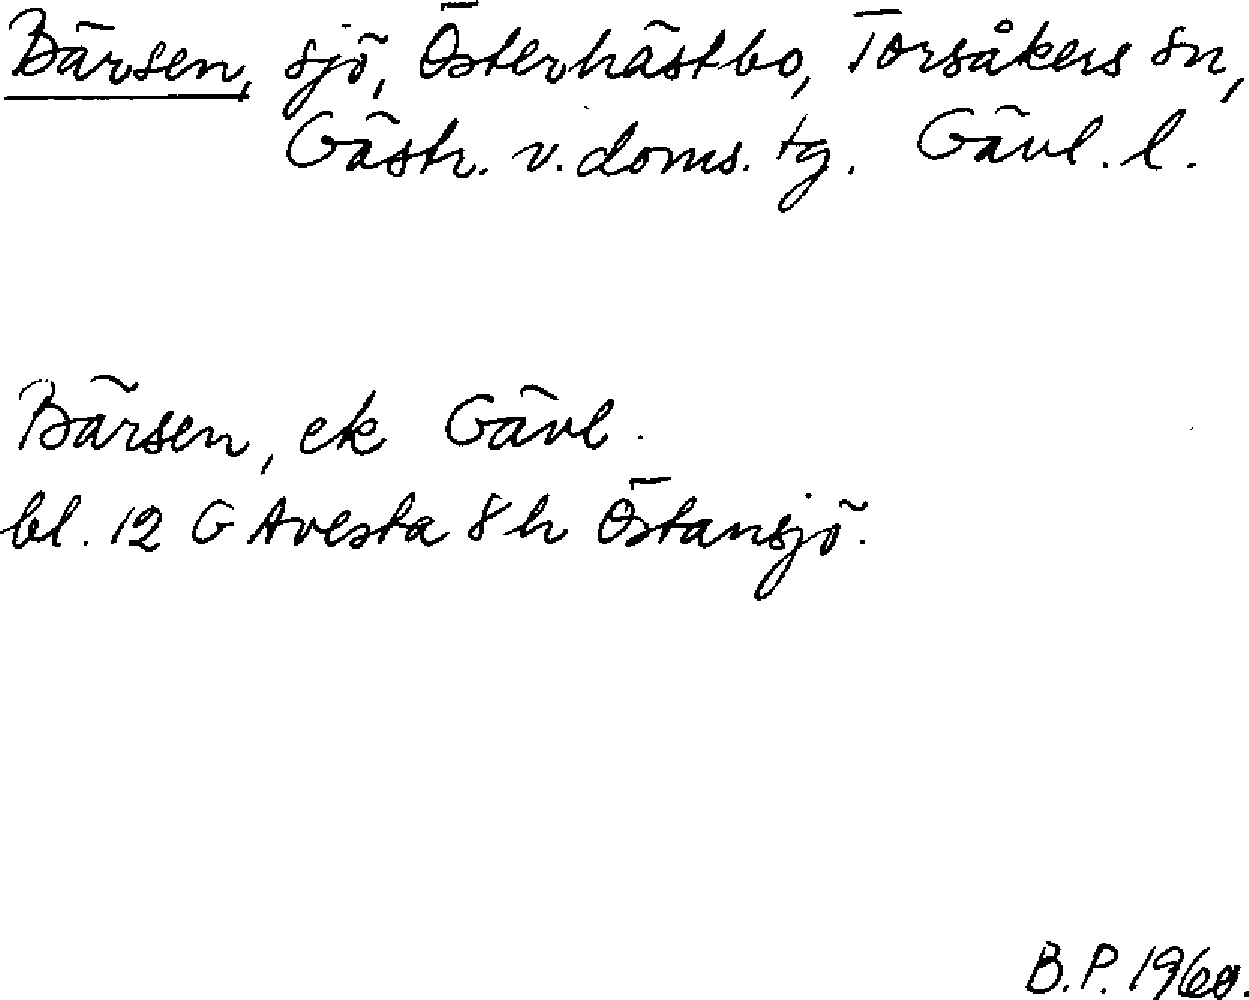 Bärsen, sjö, Österhästbo, Torsåkers sn,
Gästr. v. doms. tg. Gävl. l.
Bärsen, ek Gävl.
bl. 12 G Avesta 8 h Östansjö.
B.P. 1960.